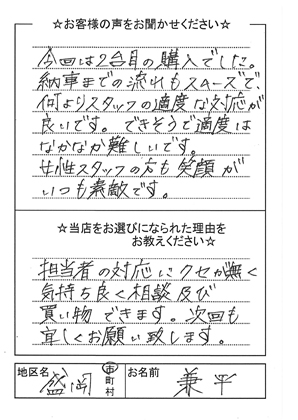 ☆お客様の声をお聞かせください☆
今回は2台目の購入でした。
納車までの流れもスムーズで、
何よりスタッフの適度な対応が
良いです。できそうで適度は
なかなか難しいです。
女性スタッフの方も笑顔が
いつも素敵です。
☆当店をお選びになられた理由を
お教えください☆
担当者の対応にクセが無く
気持ち良く相談及び
買い物できます。次回も
宜しくお願い致します。
地区名 盛岡 市町村 お名前 兼平